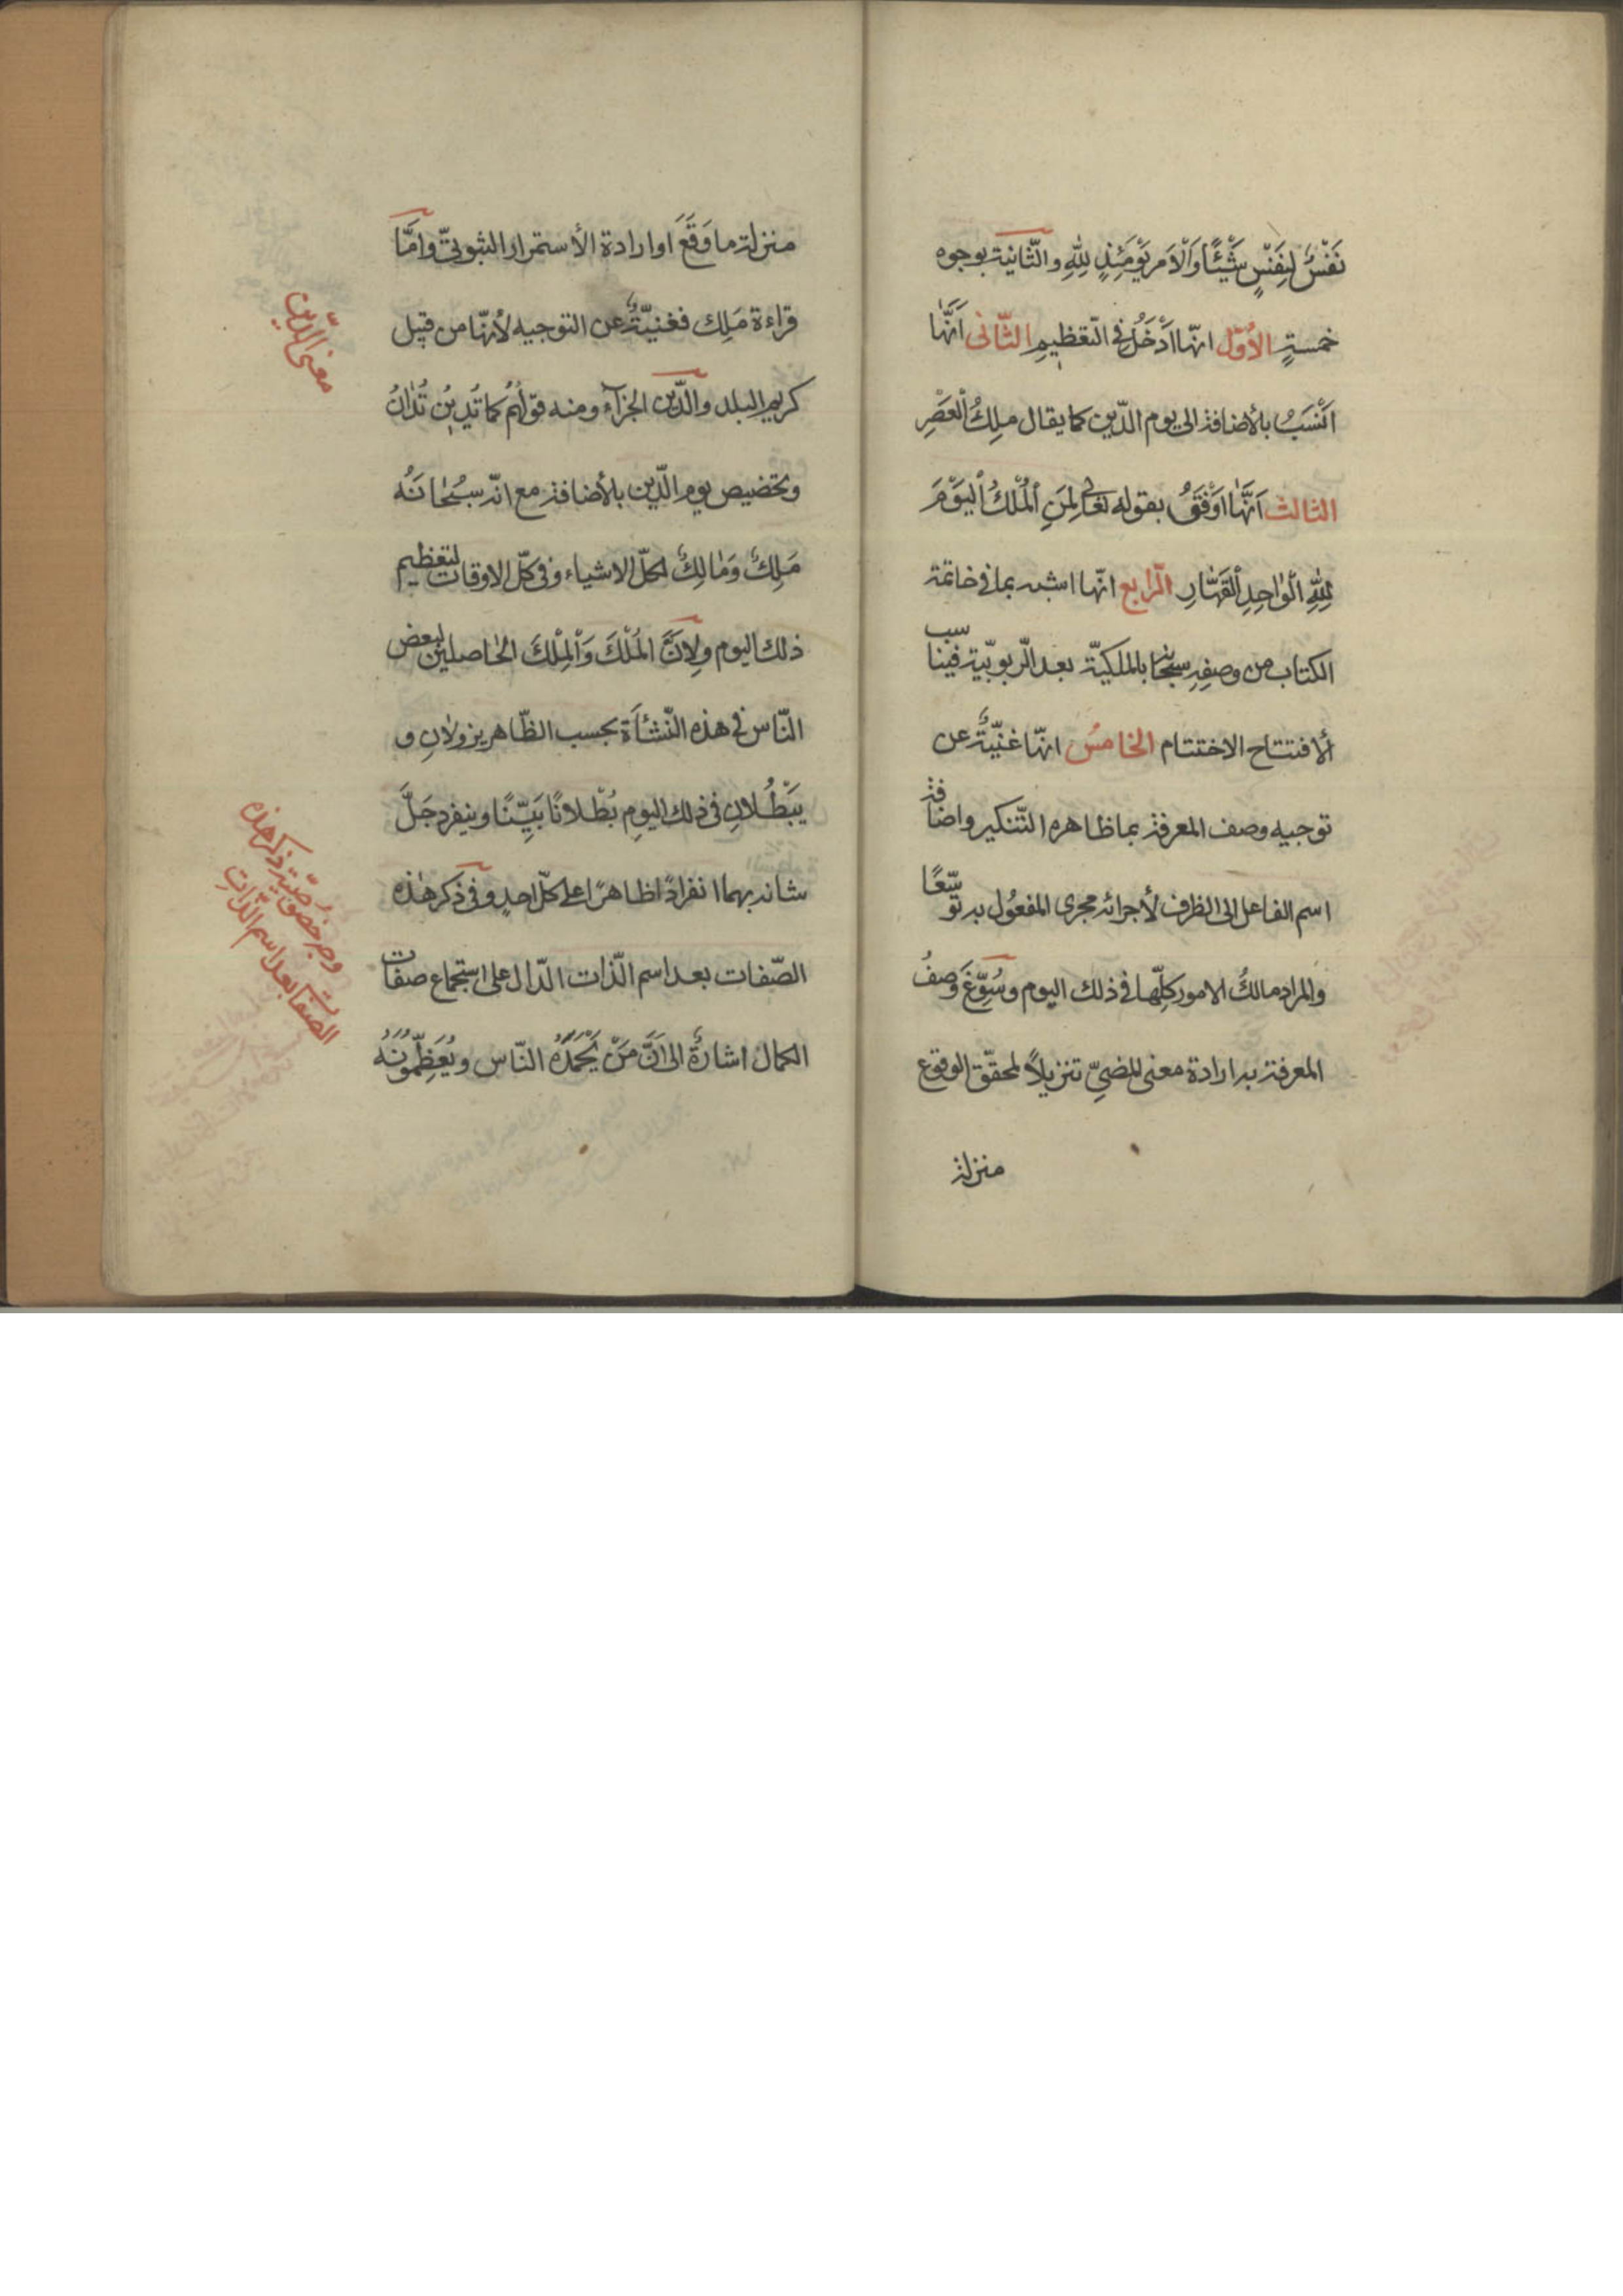 نَفْسٌ لِنَفْسٍ شَيْئًا وَالْأَمْرُ يَوْمَئِذٍ لِلّٰهِ والثّانية بوجوه
خمسةٍ الأوّل انّها اَدْخَلُ في التّعظيم الثّاني اَنَّهٰا
اَنْسَبُ بالأضافة الى يوم الدّين كما يقال ملِكُ الْعَصْرِ
الثالث اَنَّهٰا اَوْفَقُ بقوله تعالى لِمَنِ الْمُلْكُ الْيَوْمَ
لِلّٰهِ الْوٰاحِدِ الْقَهّٰارِ الرّابع انّها اشبه بما في خاتمة
الكتاب من وصفه سبحانه بالملكيّة بعد الرّبوبيّة فيناسب
الافتتاح الاختتام الخامسُ انّها غنيّةٌ عن
توجيه وصف المعرفة بما ظاهره التّنكير واضافة
اسم الفاعل الى الظرف لأجرائه مجرى المفعُول به توسّعًا
والمراد مالكُ الامور كلِّها في ذلك اليوم وسُوِّغَ وصفُ
المعرفة به ارادة معنى المضيِّ تنزيلاً لمحقّق الوقوع
منزلة
منزلة ما وَقَعَ او ارادة الأستمرار الثبوتيّ وامّا
قراءة مَلِك فغنيّةٌ عن التوجيه لأنهّا من قبيل
كريم البلد والدّين الجزآء ومنه قولُهُم كما تَدِينُ تُدٰانُ
وتخصيص يوم الدّين بالأضافة مع انّه سبُحٰانَهُ
مَلِكٌ وَمٰالِكٌ لكلّ الاشياء وفي كلّ الاوقات لتعظيم
ذلك اليوم ولِاَنَّ المُلْكَ وَالْمِلْكَ الحٰاصلين لبعض
النّاس في هذه النّشأة بحسب الظّاهر يزولان و
يَبْطُلانِ في ذلك اليوم بُطْلانًا بَيِّنًا وينفرد جَلَّ
شانه بهما انفرادًا ظاهرًا على كلّ احدٍ وفي ذكر هٰذه
الصّفات بعد اسم الذّات الدّال على استجماع صفات
الكمال اشارةٌ الى اَنَّ مَنْ يَحْمَدُهُ النّاس ويُعَظِّمُونَهُ
معنى الدّين
وجه خصوصّية ذكر هذه
الصفات بعد اسم الذّاتِ